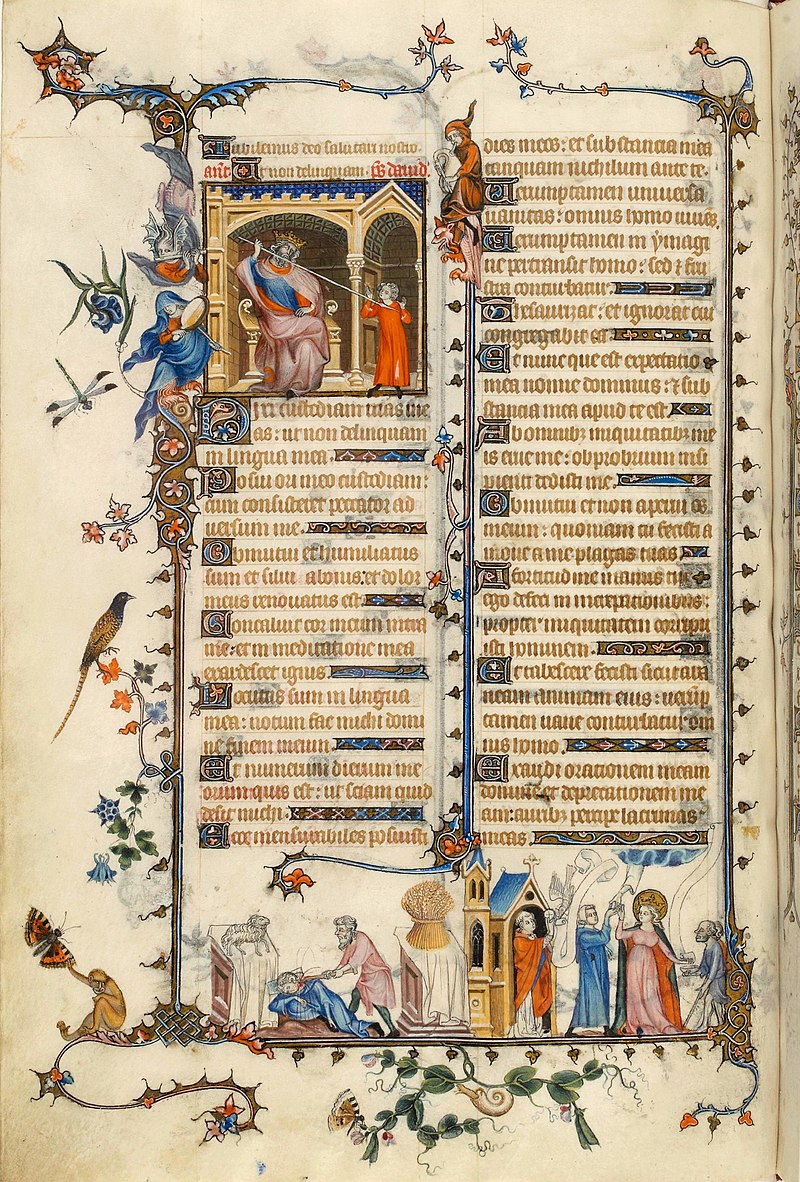 Jubilemus deo salutari nostro.
ant. Ut non delinquam. ps david
Dixi custodiam vias me
as: ut non delinquam
in lingua mea.
Posui ori meo custodiam:
cum consisteret peccator ad
versum me.
Obmutui et humiliatus
sum et silui a bonis: et dolor
meus renovatus est
Concaluit cor meum intra
me: et in meditatione mea
exardescet ignis
Locutus sum in lingua
mea: notum fac michi domi
ne finem meum
Et numerum dierum me
orum quis est: ut sciam quid
desit michi
Ecce mensurabiles posuisti
dies meos: et substancia mea
tanquam nichilum ante te.
Verumptamen universa
vanitas: omnis homo vivens
Verumptamen in ymagi
ne pertransit homo: sed et frus
tra conturbatur
Thesaurizat: et ignorat cui
congregabit ea
Et nunc que est expectatio
mea nonne dominus: et sub
stancia mea apud te est
Ab omnibus iniquitatibus me
is erue me: obprobrium insi
pienti dedisti me.
Obmutui et non aperui os
meum: quoniam tu fecisti a
move a me plagas tuas
A fortitudine manus tue
ego defeci in increpationibus:
propter iniquitatem corripu
isti hominem
Et tabescere fecisti sicut ara
neam animam eius: verump
tamen vane conturbatur om
nis homo
Exaudi orationem meam
domine et deprecationem me
am: auribus percipe lacrimas
meas.